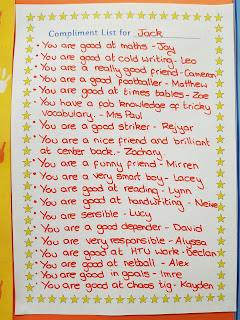 Compliment List for Jack
You are good at maths - Jay
You are good at cold writing - Leo
You are a really good friend - Cameron
You are a good footballer - Matthew
You are good at times tables - Zoe
You have a fab knowledge of tricky
vocabulary. - Mrs Paul
You are a good striker - Rejyar
You are a nice friend and brilliant
at center back. - Zachary
You are a funny friend - Mirren
You are a very smart boy - Lacey
You are good at reading - Lynn
You are good at handwriting -
You are sensible - Lucy
You are a good defender - David
You are very responsible - Alyssa
You are good at HTU work - Declan
You are good at netball - Alex
You are good in goals - Imre
You are good at chaos tig - Kayden